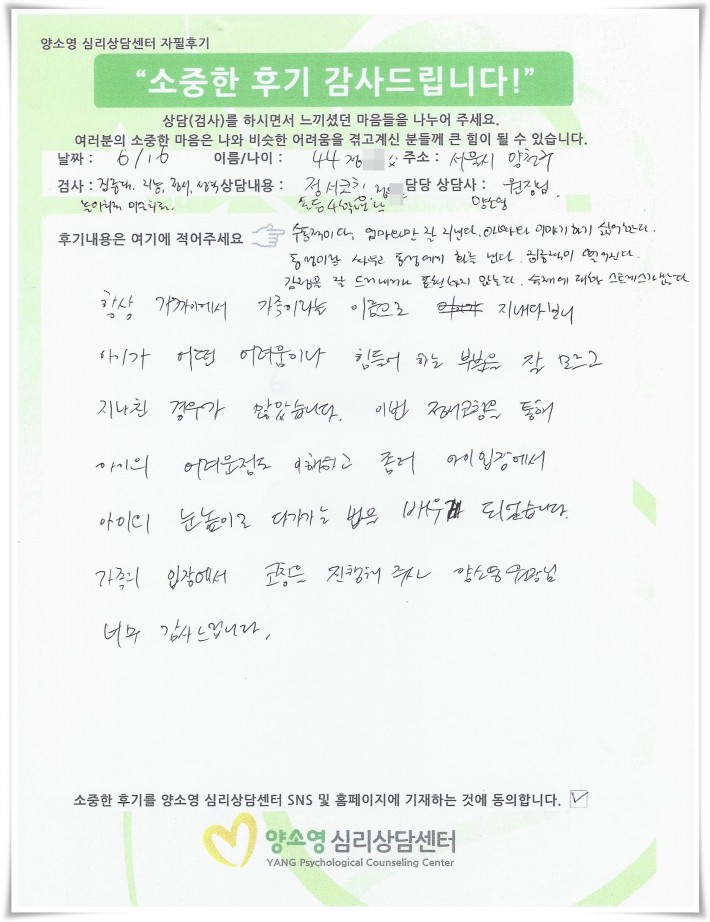 양소영 심리상담센터 자필후기
“소중한 후기 감사드립니다!”
상담(검사)를 하시면서 느끼셨던 마음들을 나누어 주세요.
여러분의 소중한 마음은 나와 비슷한 어려움을 겪고계신 분들께 큰 힘이 될 수 있습니다.
날짜 : 6/16 이름/나이 : 44 정 주소 : 서울시 양천구
검사 : 집중력. 지능, 정서, 성격 상담내용 : 정서코칭 담당 상담사 : 원장님
놀이치료 미술치료. 초등4학년 양소영
후기내용은 여기에 적어주세요 수동적이다. 엄마와만 잘 지낸다. 아빠와 이야기하기 싫어한다.
동생이랑 싸우고 동생에게 화를 낸다. 집중력이 떨어진다.
감정을 잘 드러내거나 표현하지 않는다. 숙제에 대한 스트레스가 많다
항상 가까이에서 가족이라는 이름으로 지내다보니
아이가 어떤 어려움이나 힘들어 하는 부분을 잘 모르고
지나친 경우가 많았습니다. 이번 정서코칭을 통해
아이의 어려운점도 이해하고 좀더 아이입장에서
아이의 눈높이로 다가가는 법을 배우게 되었습니다.
가족의 입장에서 코칭을 진행해 주신 양소영 원장님
너무 감사드립니다.
소중한 후기를 양소영 심리상담센터 SNS 및 홈페이지에 기재하는 것에 동의합니다.
양소영 심리상담센터
YANG Psychological Counseling Center